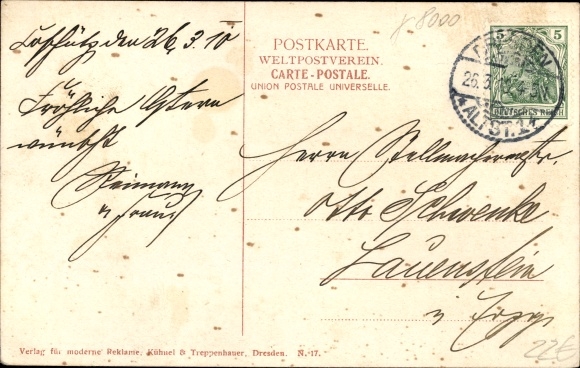 Löschütz den 26.3.10
Fröhliche Ostern
wünscht
Reimann
u Frau
POSTKARTE.
WELTPOSTVEREIN.
CARTE-POSTALE.
UNION POSTALE UNIVERSELLE.
γ 8000
5 5
DEUTSCHES REICH
DRESDEN
26.3.
ALTST. 14
Herrn Stellmachermstr.
Otto Schwenke
Lauenstein
i/ Erzg.
Verlag für moderne Reklame, Kühnel & Treppenhauer, Dresden. N. 17.